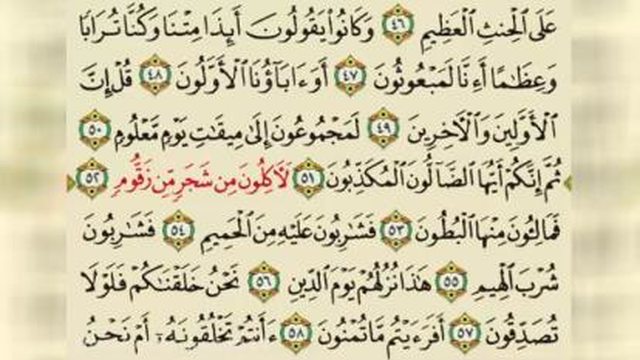 عَلَى الْحِنثِ الْعَظِيمِ ٤٦ وَكَانُوا۟ يَقُولُونَ أَئِذَا مِتْنَا وَكُنَّا تُرَابًا
وَعِظَٰمًا أَءِنَّا لَمَبْعُوثُونَ ٤٧ أَوَءَابَآؤُنَا الْأَوَّلُونَ ٤٨ قُلْ إِنَّ
الْأَوَّلِينَ وَالْآخِرِينَ ٤٩ لَمَجْمُوعُونَ إِلَىٰ مِيقَٰتِ يَوْمٍ مَّعْلُومٍ ٥٠
ثُمَّ إِنَّكُمْ أَيُّهَا الضَّآلُّونَ الْمُكَذِّبُونَ ٥١ لَآكِلُونَ مِن شَجَرٍ مِّن زَقُّومٍ ٥٢
فَمَالِـُٔونَ مِنْهَا الْبُطُونَ ٥٣ فَشَٰرِبُونَ عَلَيْهِ مِنَ الْحَمِيمِ ٥٤ فَشَٰرِبُونَ
شُرْبَ الْهِيمِ ٥٥ هَٰذَا نُزُلُهُمْ يَوْمَ الدِّينِ ٥٦ نَحْنُ خَلَقْنَٰكُمْ فَلَوْلَا
تُصَدِّقُونَ ٥٧ أَفَرَءَيْتُم مَّا تُمْنُونَ ٥٨ ءَأَنتُمْ تَخْلُقُونَهُۥٓ أَمْ نَحْنُ